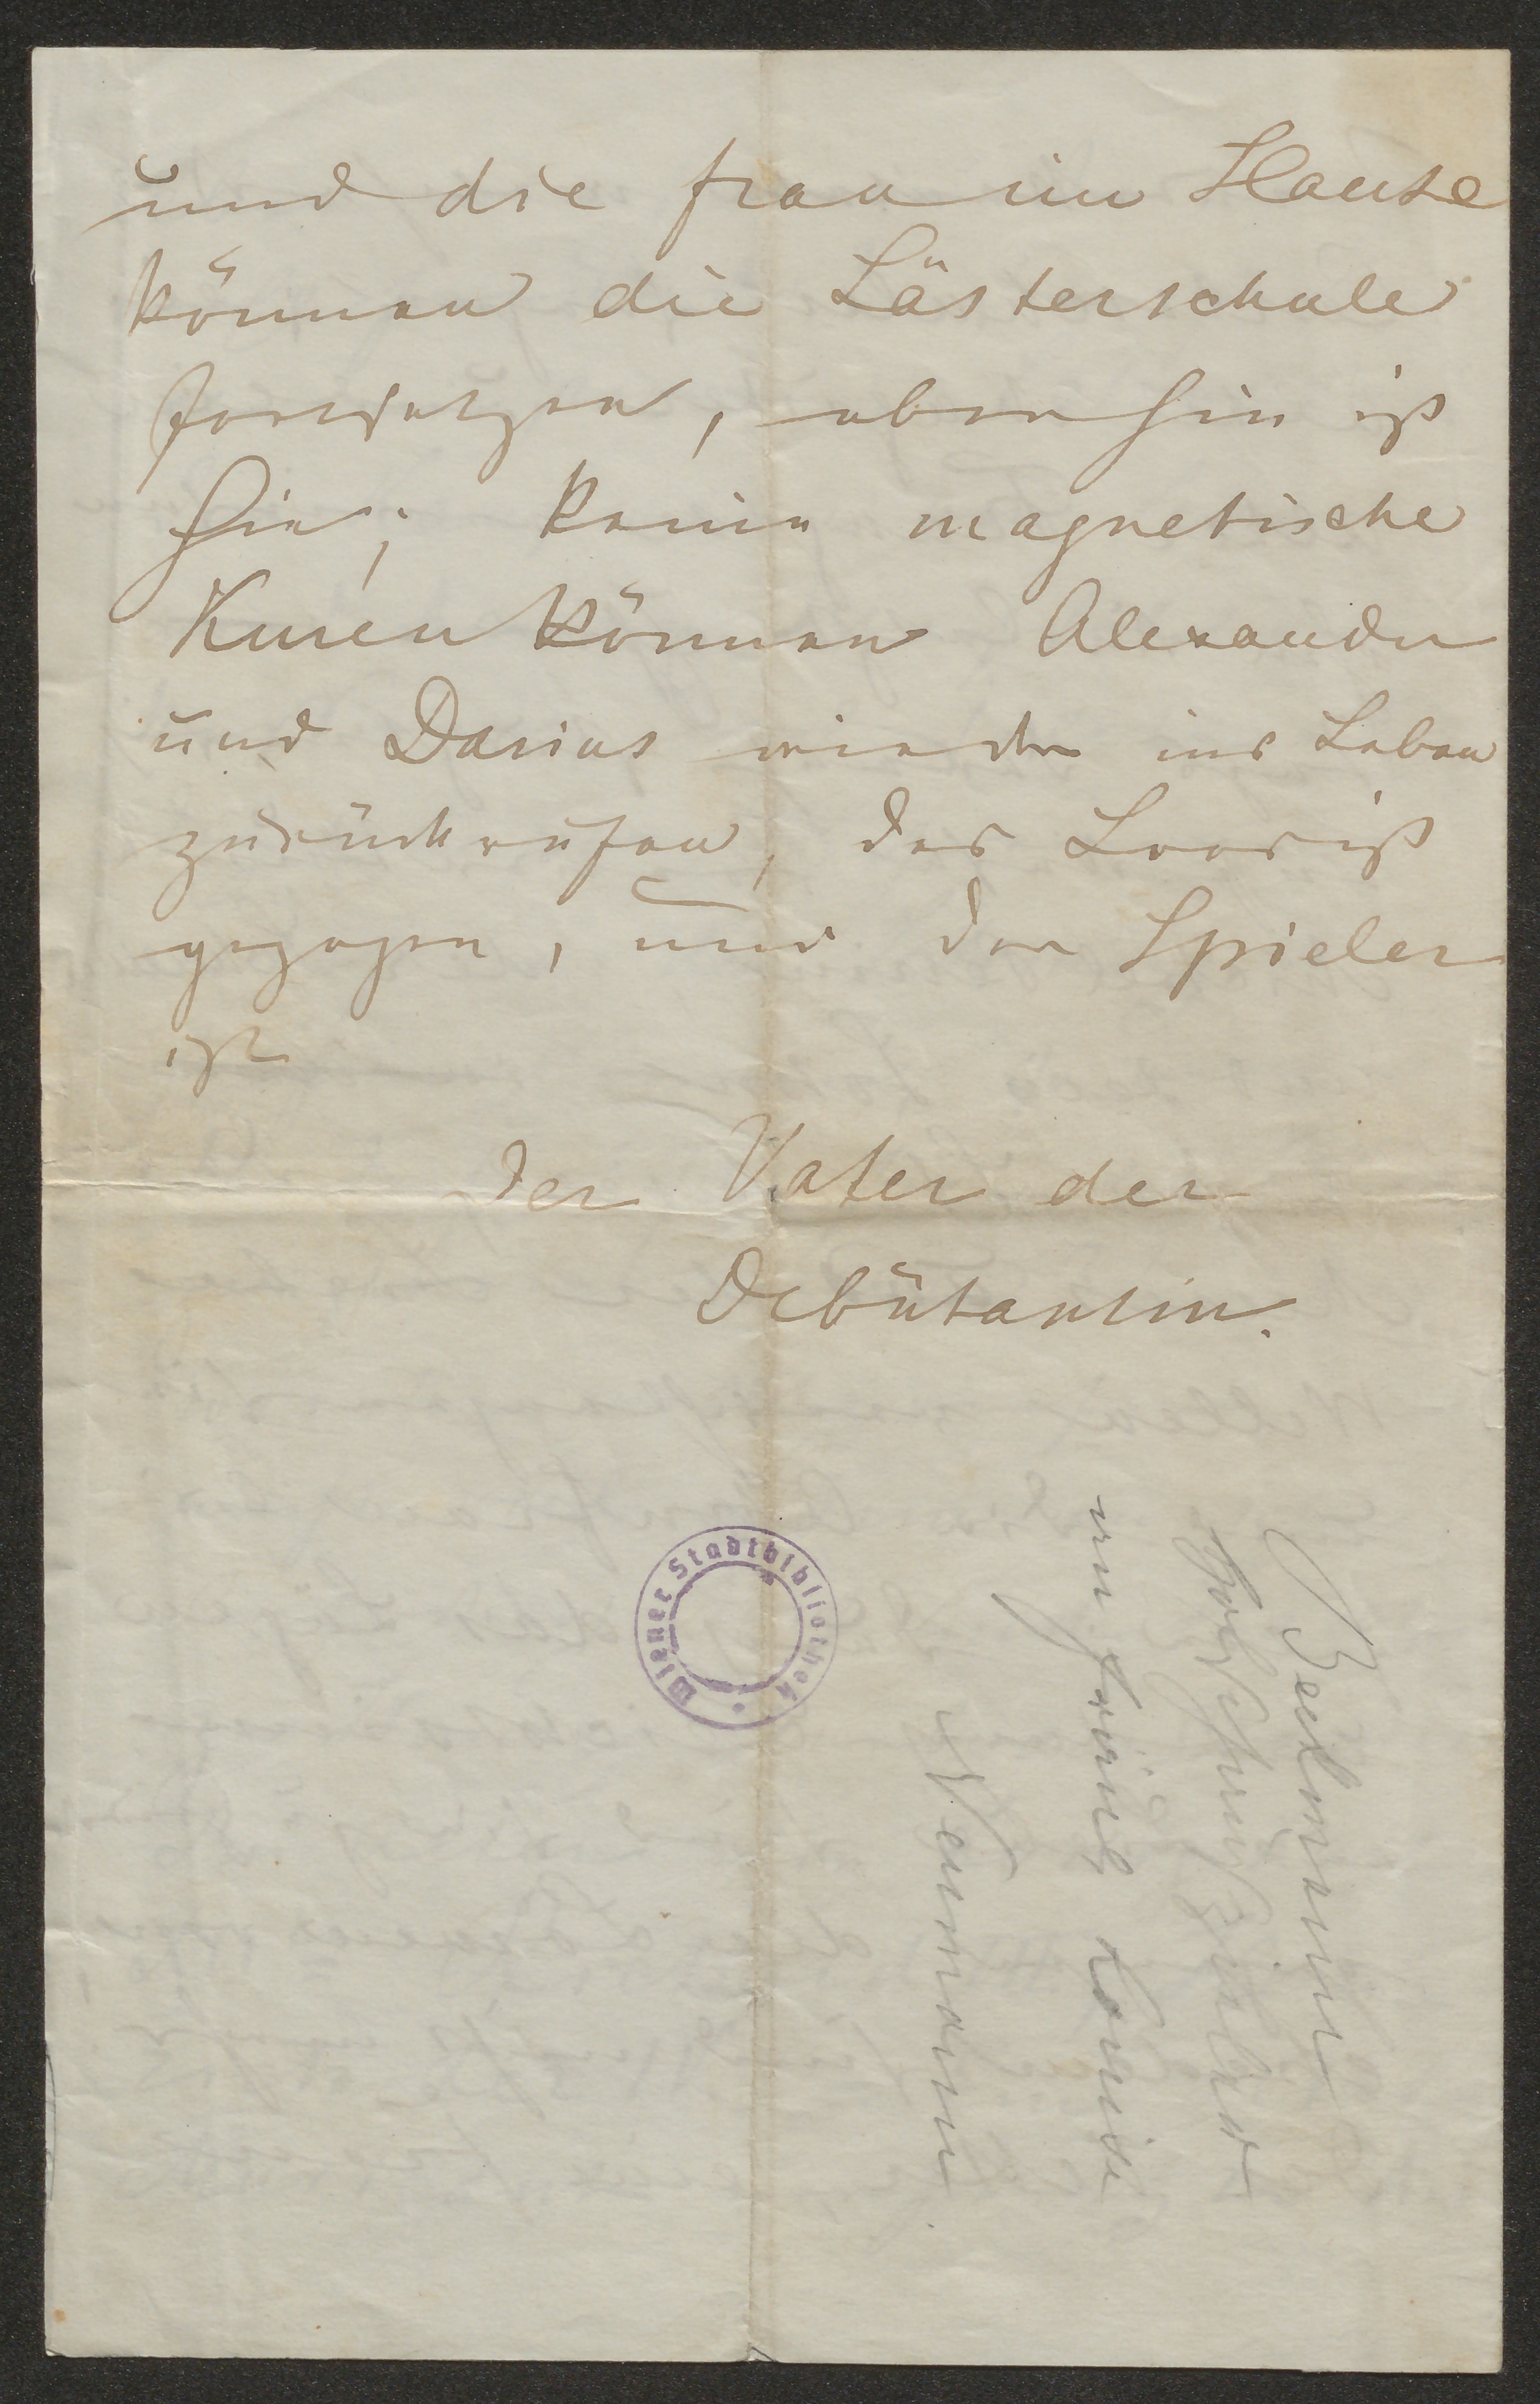 und die Frau im Hause
können die Lästerschule
fortsetzen, aber hin ist
hin; keine magnetische
Kuren können Alexander
und Darius wieder ins Leben
zurückrufen, das Loos ist
gezogen, und der Spieler
ist
der Vater der
Debütantin.
Wiener Stadtbibliothek
Beckmann
Hofschauspieler
an Fräul. Louise
Neumann.